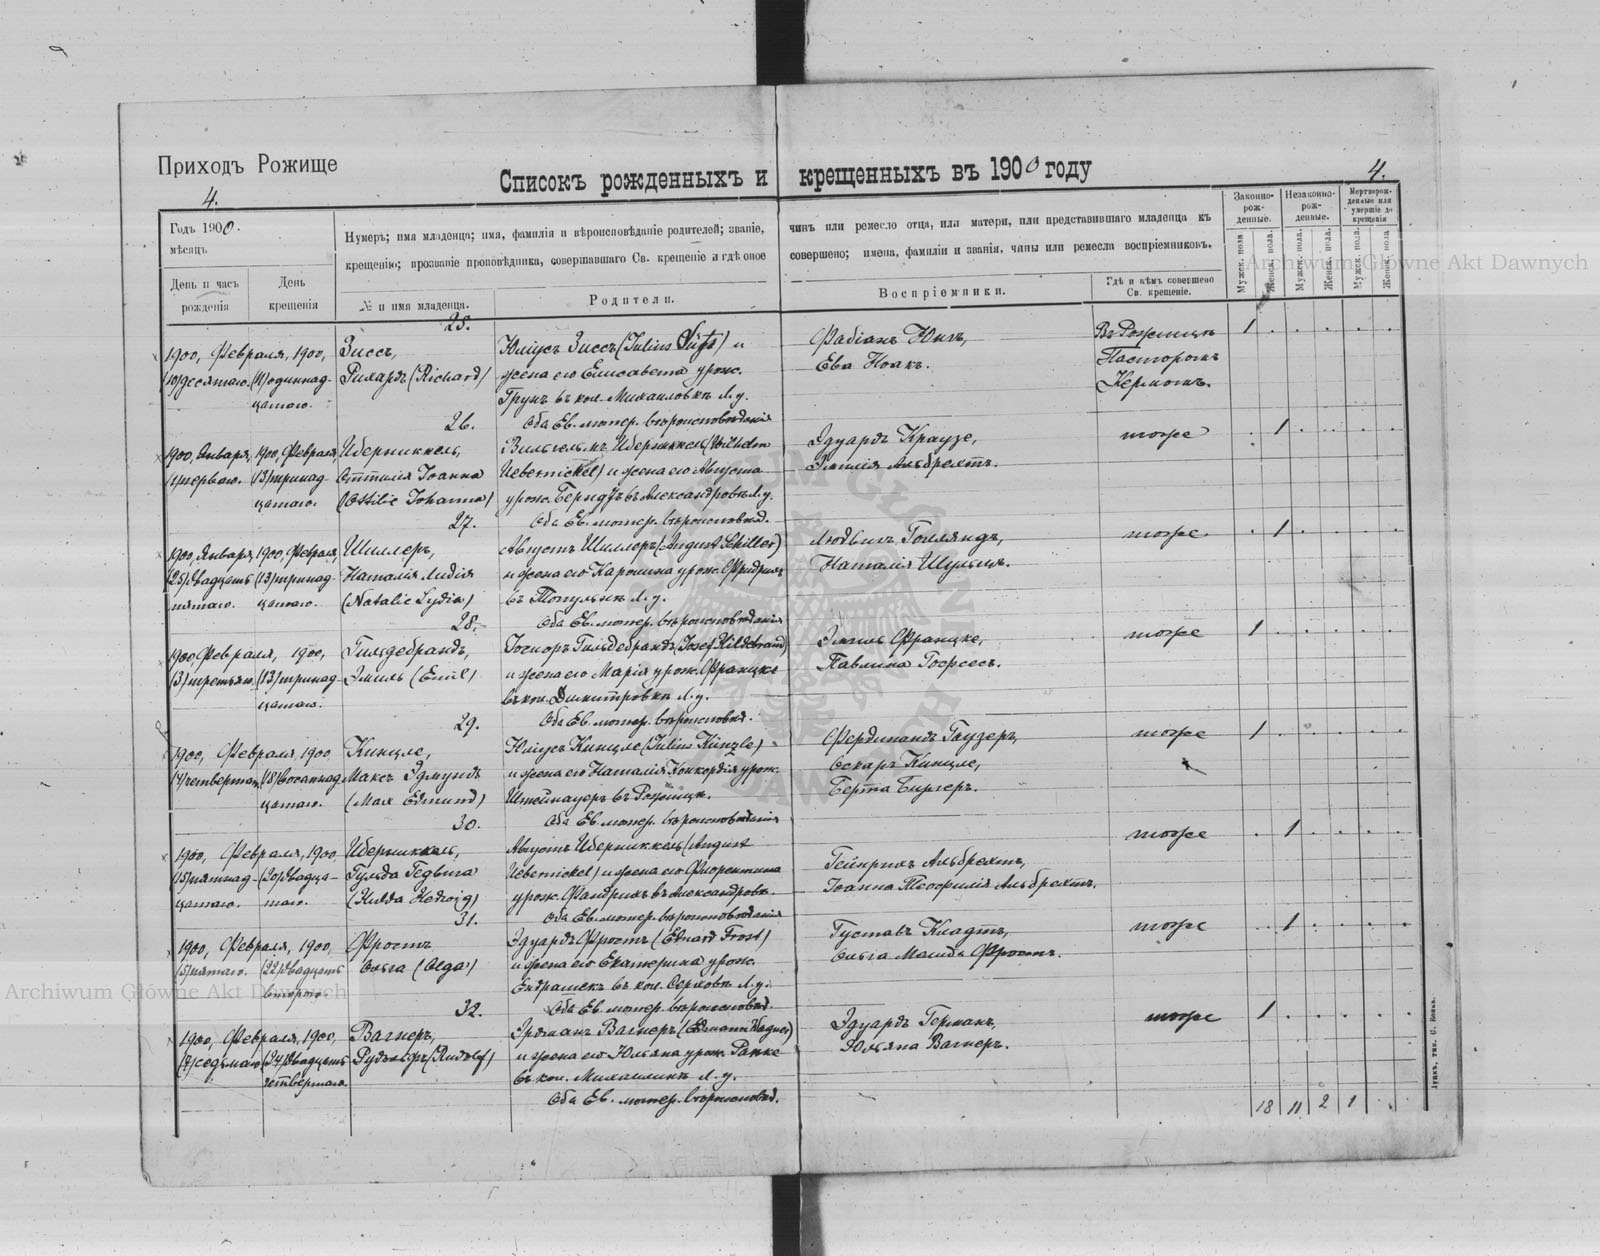 Приходъ Рожище
Списокъ рожденныхъ и крещенныхъ въ 1900 году
4.
4.
Годъ 1900.
мѣсяцъ
День и часъ рожденія
День крещенія
Нумеръ; имя младенца; имя, фамилія и вѣроисповѣданіе родителей; званіе, чинъ или ремесло отца, или матери, или представившаго младенца къ
крещенію; прозваніе проповѣдника, совершавшаго Св. крещеніе и гдѣ оное совершено; имена, фамиліи и званія, чины или ремесла воспріемниковъ.
№ и имя младенца.
Родители.
Воспріемники.
Гдѣ и кѣмъ совершено Св. крещеніе.
Законно-рож-денные.
Незаконно-рож-денные.
Мертворож-денные или умершіе до крещенія
Мужск. пола
Женск. пола.
Мужск. пола.
Женск. пола.
Мужск. пола.
Женск. пола
25.
1900, Февраля, 1900, Зиссъ, Юліусъ Зиссъ (Julius Süss) и Фабіанъ Юнгъ, Въ Рожищѣ 1
(10) десятаго. (11) одиннад- Рихардъ (Richard) жена его Елисавета урож. Ева Ноакъ. Пасторомъ
цатаго. Грунъ въ кол. Михаиловкѣ Л. у. Кермомъ.
26. Оба Ев. лютер. вѣроисповѣданія
1900, Января, 1900, Февраля, Ибериккель, Вильгельмъ Иберниккель (Wilhelm Эдуардъ Краузе, тоже 1
(1) перваго. (13) тринад- Оттилія Іоанна Uebernickel) и жена его Августа Эмилія Альбрехтъ.
цатаго. (Ottilie Johanna) урож. въ Александровкѣ Л. у.
27. Оба Ев. лютер. вѣроисповѣд.
1900, Января, 1900, Февраля, Шиллеръ, Августъ Шиллеръ (August Schiller) Людвигъ Голляндъ, тоже 1
(25) двадцать (13) тринад- Наталія Лидія и жена его Каролина урож. Фридрихъ Наталія Шульцъ.
пятаго. цатаго. (Natalie Lydia) въ Топульнѣ Л. у.
28. Оба Ев. лютер. вѣроисповѣданія
1900, Февраля, 1900, Гильдебрандъ, Іосифъ Гильдебрандъ (Josef Hildebrand) Эмиль Францке, тоже 1
(3) третьяго (13) тринад- Эмиль (Emil) и жена его Марія урож. Францке Павлина
цатаго. въ кол. Димитровкѣ Л. у.
29. Оба Ев. лютер. вѣроисповѣд.
1900, Февраля, 1900 Кинцле, Юліусъ Кинцле (Julius Künzle) Фердинандъ Гаузеръ, тоже 1
(4) четвертаго (18) восемнад- Максъ Эдмундъ и жена его Наталія Конкордія урож. Оскаръ Кинцле,
цатаго. (Max Edmund) Штейнауеръ въ Рожищѣ. Берта
30. Оба Ев. лютер. вѣроисповѣданія
1900, Февраля, 1900 Иберниккель, Августъ Иберниккель (August тоже 1
(15) пятнад- (20) двадца- Гульда Гедвига Uebernickel) и жена его Флорентина Гейнрихъ Альбрехтъ,
цатаго. таго. (Hulda Hedwig) урож. Фандрихъ въ Александровкѣ. Іоанна Теофилія Альбрехтъ.
31. Оба Ев. лютер. вѣроисповѣданія
1900, Февраля, 1900, Фростъ Эдуардъ Фростъ (Eduard Frost) Густавъ Кладтъ, тоже 1
(5) пятаго. (22) двадцать Ольга (Olga) и жена его Екатерина урож. Ольга Фростъ.
второго. Ендрашекъ въ кол. Л. у.
32. Оба Ев. лютер. вѣроисповѣд.
1900, Февраля, 1900, Вагнеръ, Эрдманъ Вагнеръ (Erdmann Wagner) Эдуардъ Германъ, тоже 1
(7) седьмаго (24) двадцать Рудольфъ (Rudolf) и жена его Юльяна урож. Ранке Юльяна Вагнеръ.
четвертаго въ кол. Михалинѣ Л. у.
Оба Ев. лютер. вѣроисповѣд.
18 11 2 1
Луцкъ, тип. С. Бонка.
Archiwum Główne Akt Dawnych
Archiwum Główne Akt Dawnych